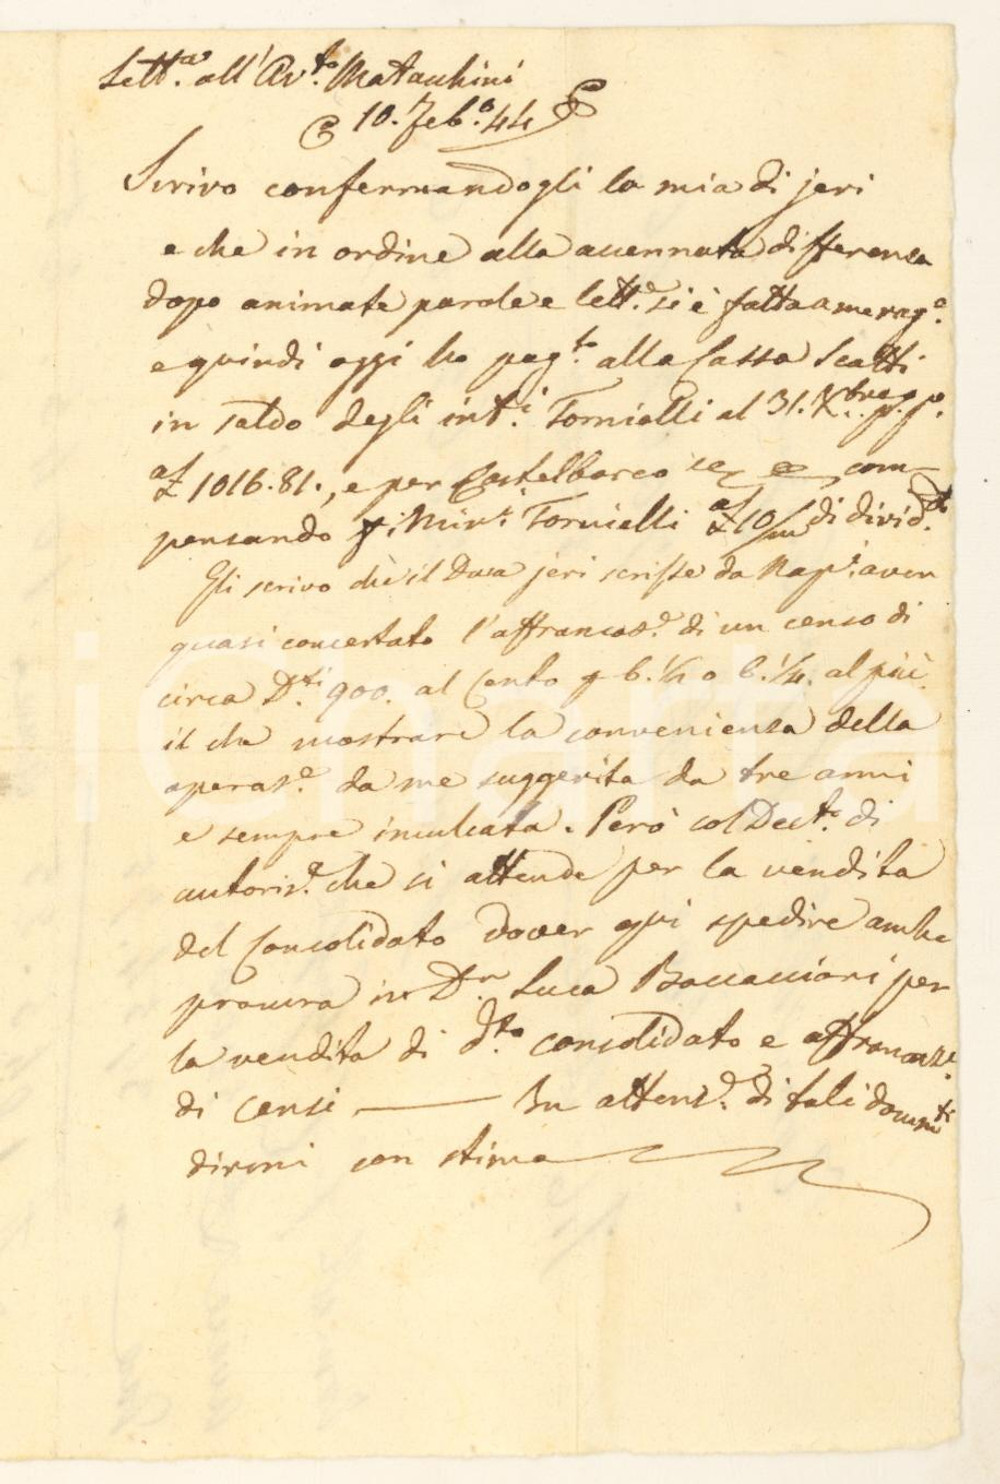 Lett.ª all'Av.to Matacchini
10. Feb.º 44
Scrivo confermandogli la mia di jeri
e che in ordine alla accennata differenza
dopo animate parole e lett.e si è fatta a me rag.e
e quindi oggi ho pag.to alla Cassa Scatti
in saldo degli int.i Tornielli al 31. Xbre p.p.º
£ 1016.81., e per Castelbarco com-
pensando Min.i Tornielli £ 10/m di divid.do
Gli scrivo che il Duca jeri scrisse da Nap.i aver
quasi concertato l'affrancaz.e di un censo di
circa D.ti 900. al Cento 6.1/2 o 6.1/4. al più
il che mostrare la convenienza della
operaz.e da me suggerita da tre anni
e sempre inculcata. Però col Dect.o di
autoriz.e che si attende per la vendita
del Consolidato dover qui spedire anche
procura in D.r Luca Boccacciari per
la vendita di d.to consolidato e affrancaz.e
di censi — In attenz.e di tali docum.ti
dirmi con stima